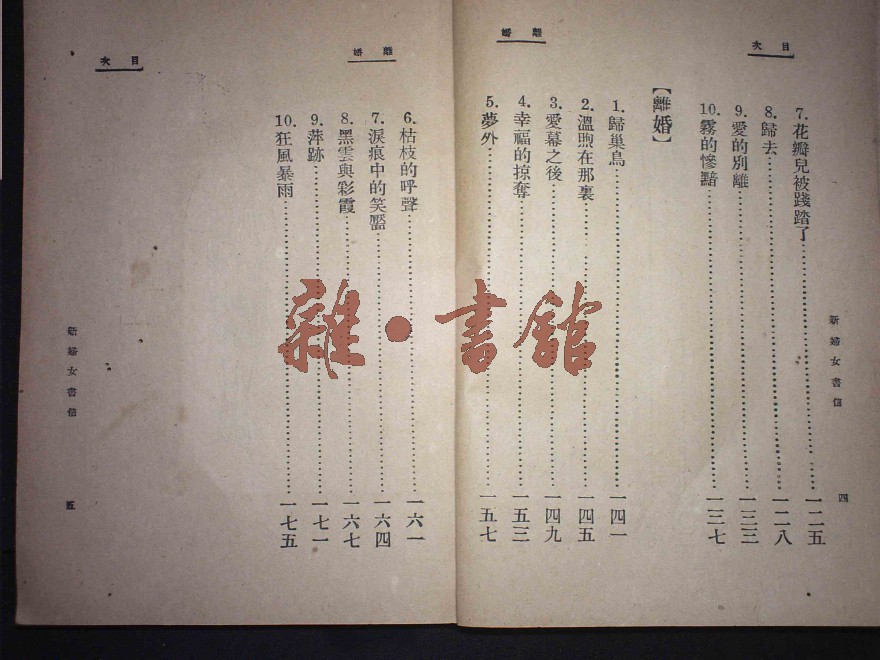 目次
7. 花瓣兒被踐踏了 一二五
8. 歸去 一二八
9. 愛的別離 一三三
10. 霧的慘黯 一三七
新婦女書信
四
離婚
【離婚】
1. 歸巢鳥 一四一
2. 溫煦在那裏 一四五
3. 愛幕之後 一四九
4. 幸福的掠奪 一五三
5. 夢外 一五七
離婚
6. 枯枝的呼聲 一六一
7. 淚痕中的笑靨 一六四
8. 黑雲與彩霞 一六七
9. 萍跡 一七一
10. 狂風暴雨 一七五
目次
新婦女書信
五
雜·書館